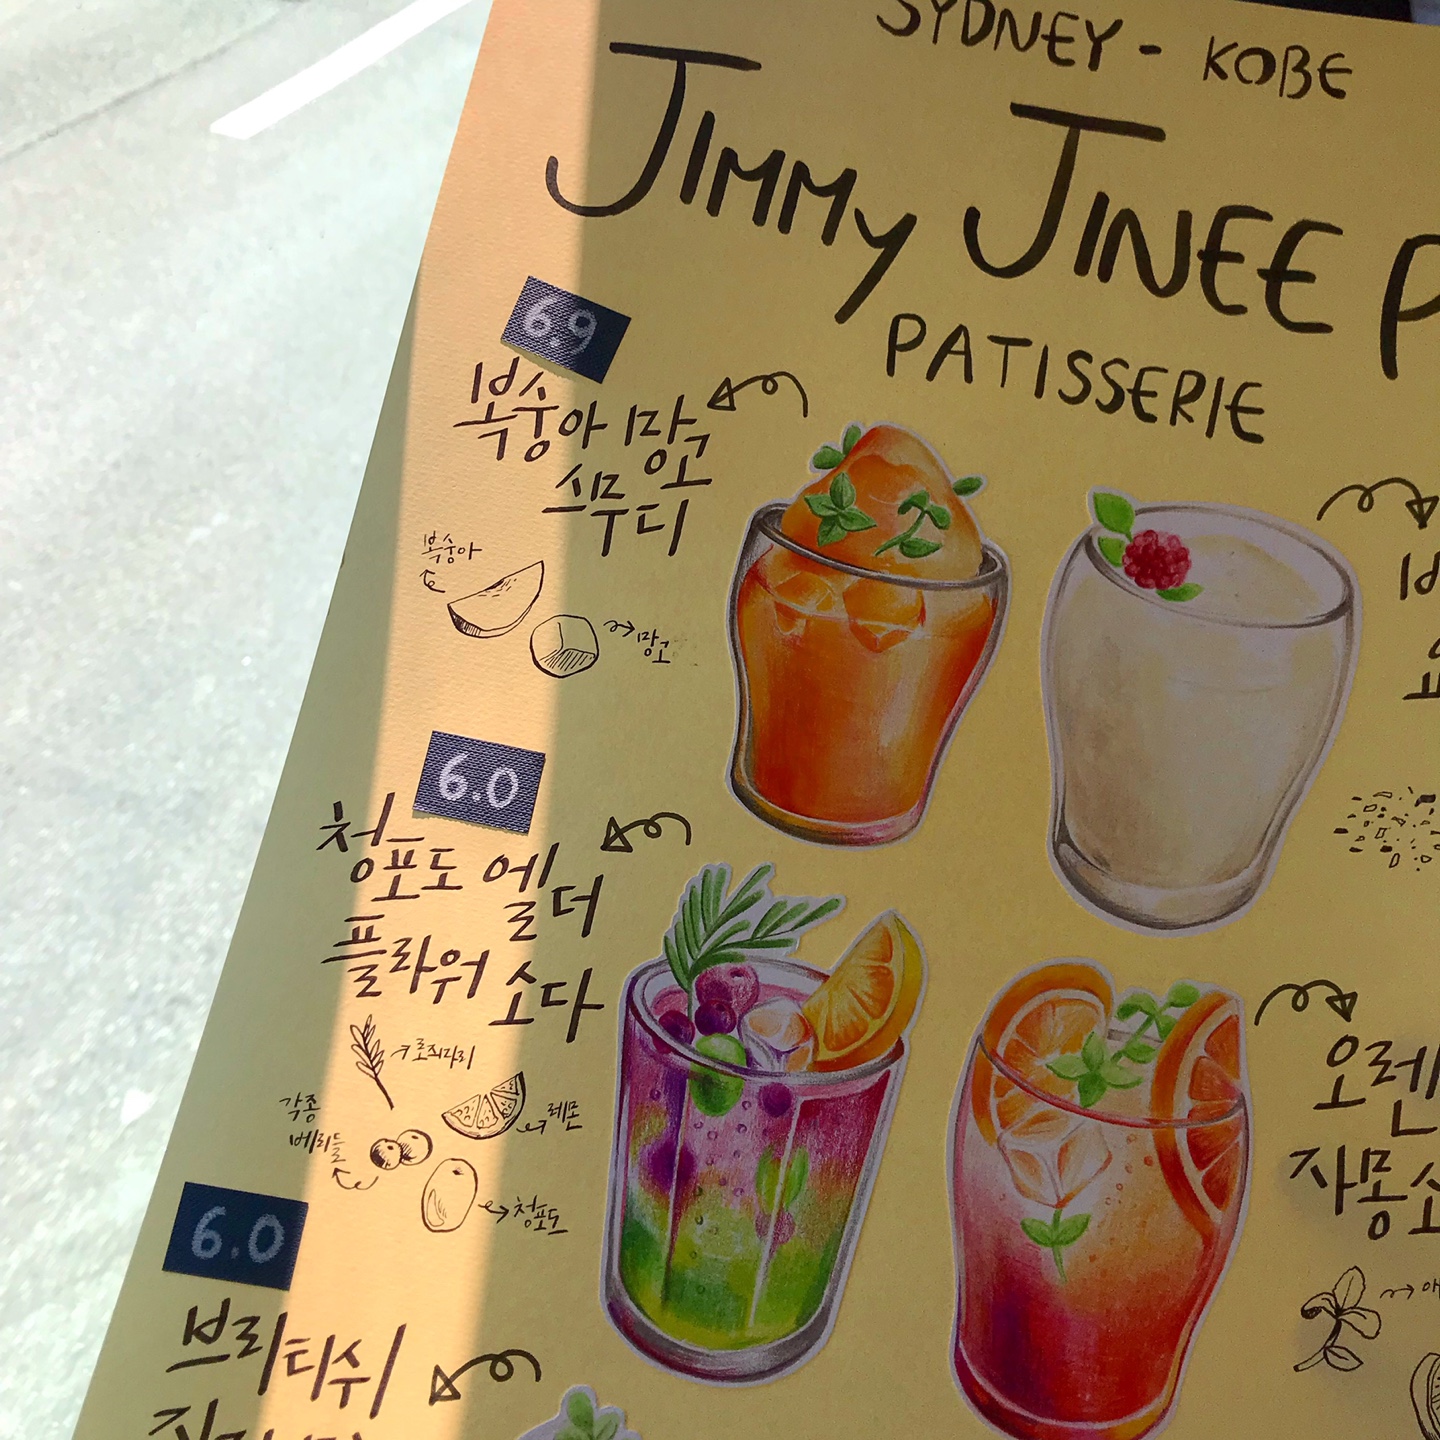 SYDNEY - KOBE
JIMMY JINEE P
PATISSERIE
6.9
복숭아 망고
스무디
복숭아
망고
6.0
청포도 엘더
플라워 소다
로즈마리
각종
베리들
레몬
청포도
오렌
자몽소
6.0
브리티쉬